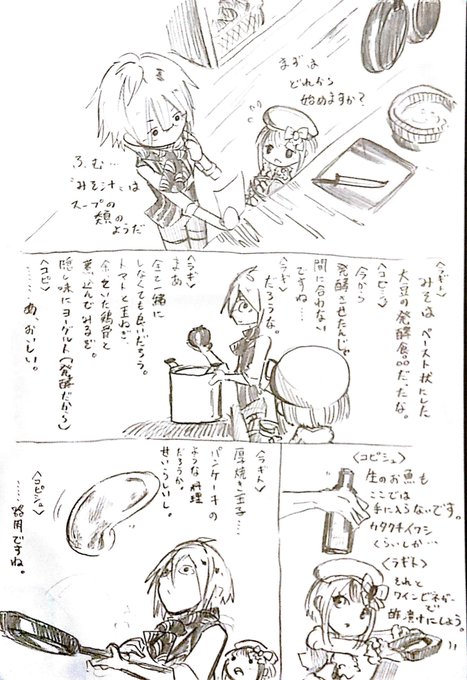 まずは
どれから
始めますか?
ふむ…
「みそ汁」は
スープの
類の
ようだ
〈ラギト〉
みそは ペースト状にした
大豆の発酵食品だったな。
〈コピシュ〉
今から
発酵させたんじゃ
間に合わない
ですね…
〈ラギ〉
だろうな。
〈ラギ〉
まあ
全く一緒に
しなくても良いだろう。
トマトと玉ねぎ、
余っていた鶏骨と
煮込んでみるぞ。
隠し味にヨーグルト(発酵だから)
〈コピ〉
……あ、おいしい。
〈コピシュ〉
生のお魚も
ここでは
手に入らないです。
カタクチイワシ
くらいしか…
〈ラギト〉
それと
ワインビネガーで
酢漬けにしよう。
〈ラギト〉
厚焼き玉子…
パンケーキの
ような料理
だろうか。
せいっ
〈コピシュ〉
……器用ですね。